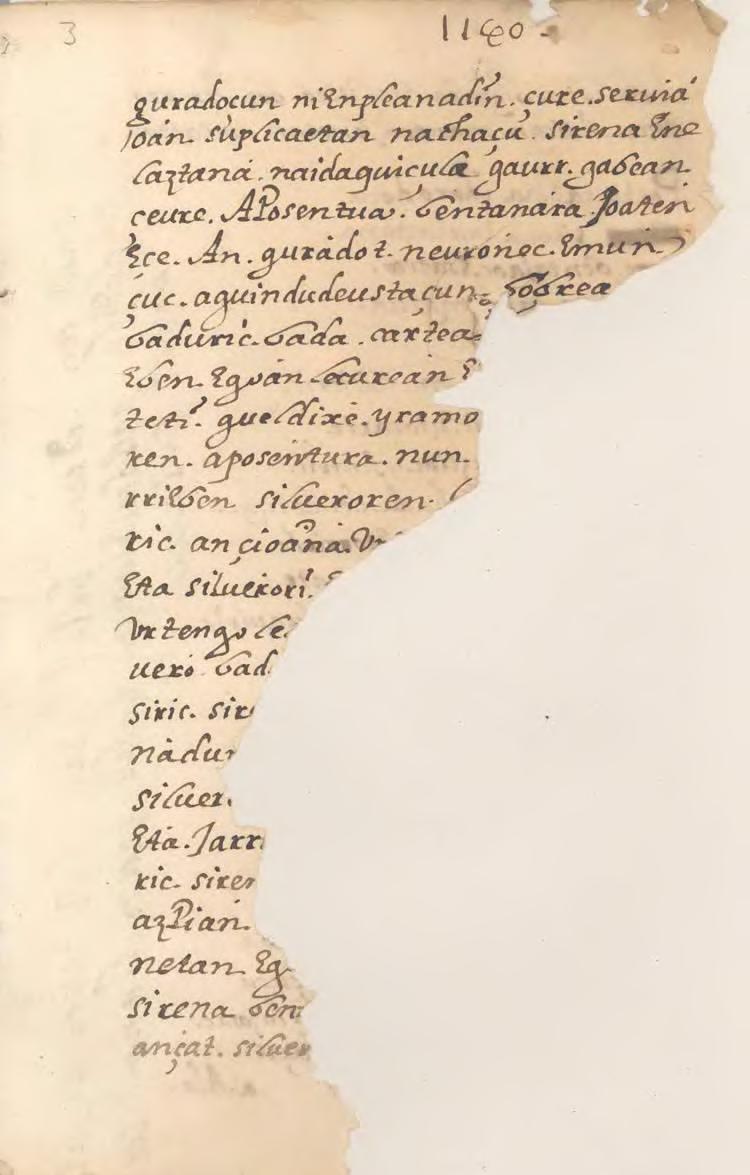 3 1140
guradocun ni Enpleanadin. çure. seruiá
Joan suplicaetan nathaçu. sirena Ene
laztaná. naidaguiçula gaurr. gabean
çeure. APosentua. bentanára Joaten
Ece. An. gurádot. neuronec. Emun
çuc. aguindudeustaçun. bobrea
baduric. bada. cartea
Eben. Egoan lecurean E
teti. gueldixe. yramo
ren. aposentura. nun
rrilben silueroren.
ric. ançioana. Vr
Eta silueror.
vrtengo le
uero bad
siric. sir
nàdur
siluer.
Eta. Jarr
ric. siren
azPian.
netan Eg
sirena ben
ançat. siluer